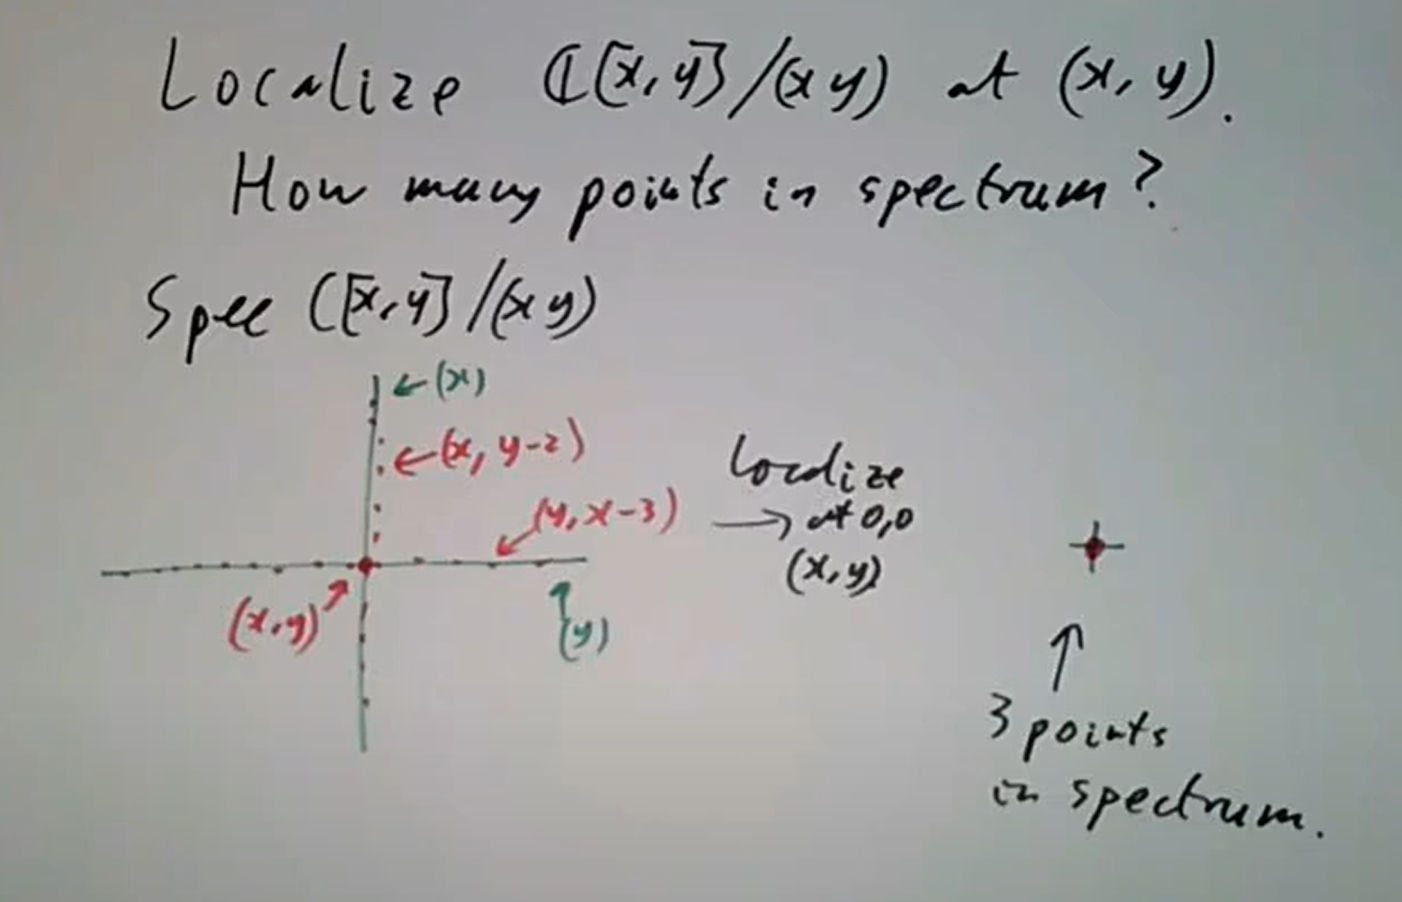 Localize ℂ[x,y]/(xy) at (x,y).
How many points in spectrum?
Spec ℂ[x,y]/(xy)
←(x)
←(x, y-2)
(y, x-3)
(x,y)
(y)
Localize
→ at 0,0
(x,y)
↑
3 points
in spectrum.